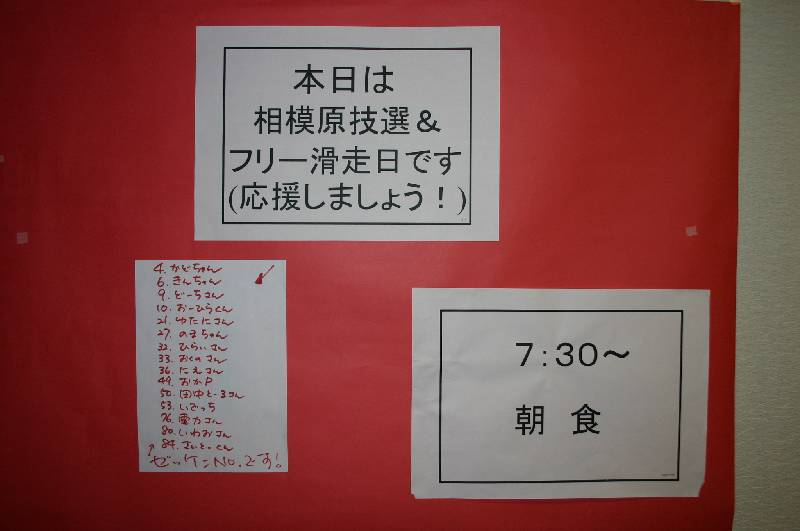 本日は
相模原技選＆
フリー滑走日です
(応援しましょう！)
4. かどちゃん
6. きんちゃん
9. どーちさん
10. おーひらくん
21. ゆたにさん
27. のまちゃん
32. ひらいさん
33. おくのさん
36. にえさん
49. おかP
50. 田中とーるさん
53. いでっち
76. 宽力さん
80. いわおさん
84. さいとーくん
↑ゼッケンNo.です!
7:30～
朝 食